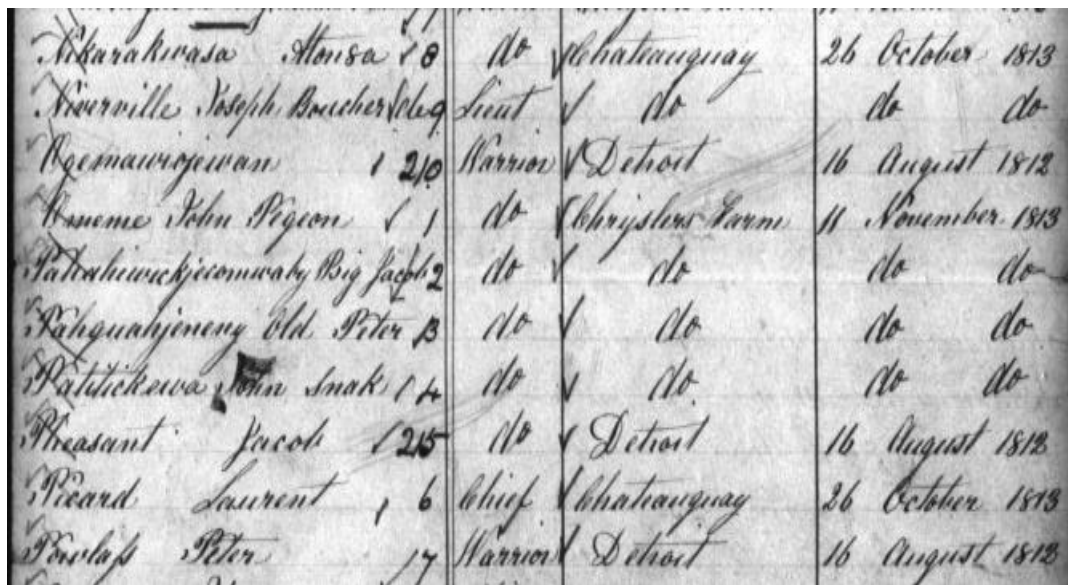 Nikarakwasa Atonsa 8 do Chateauguay 26 October 1813
Niverville Joseph Boucher de 9 Lieut do do do
Ogemawojewan 210 Warrior Detroit 16 August 1812
Omeme John Pigeon 1 do Chryslers Farm 11 November 1813
Pahahiwickjecomwaby Big Jacob 2 do do do do
Pahguahjeneny Old Peter 3 do do do do
Patitickewa John Snak 4 do do do do
Pheasant Jacob 215 do Detroit 16 August 1812
Picard Laurent 6 Chief Chateauguay 26 October 1813
Powlass Peter 7 Warrior Detroit 16 August 1812